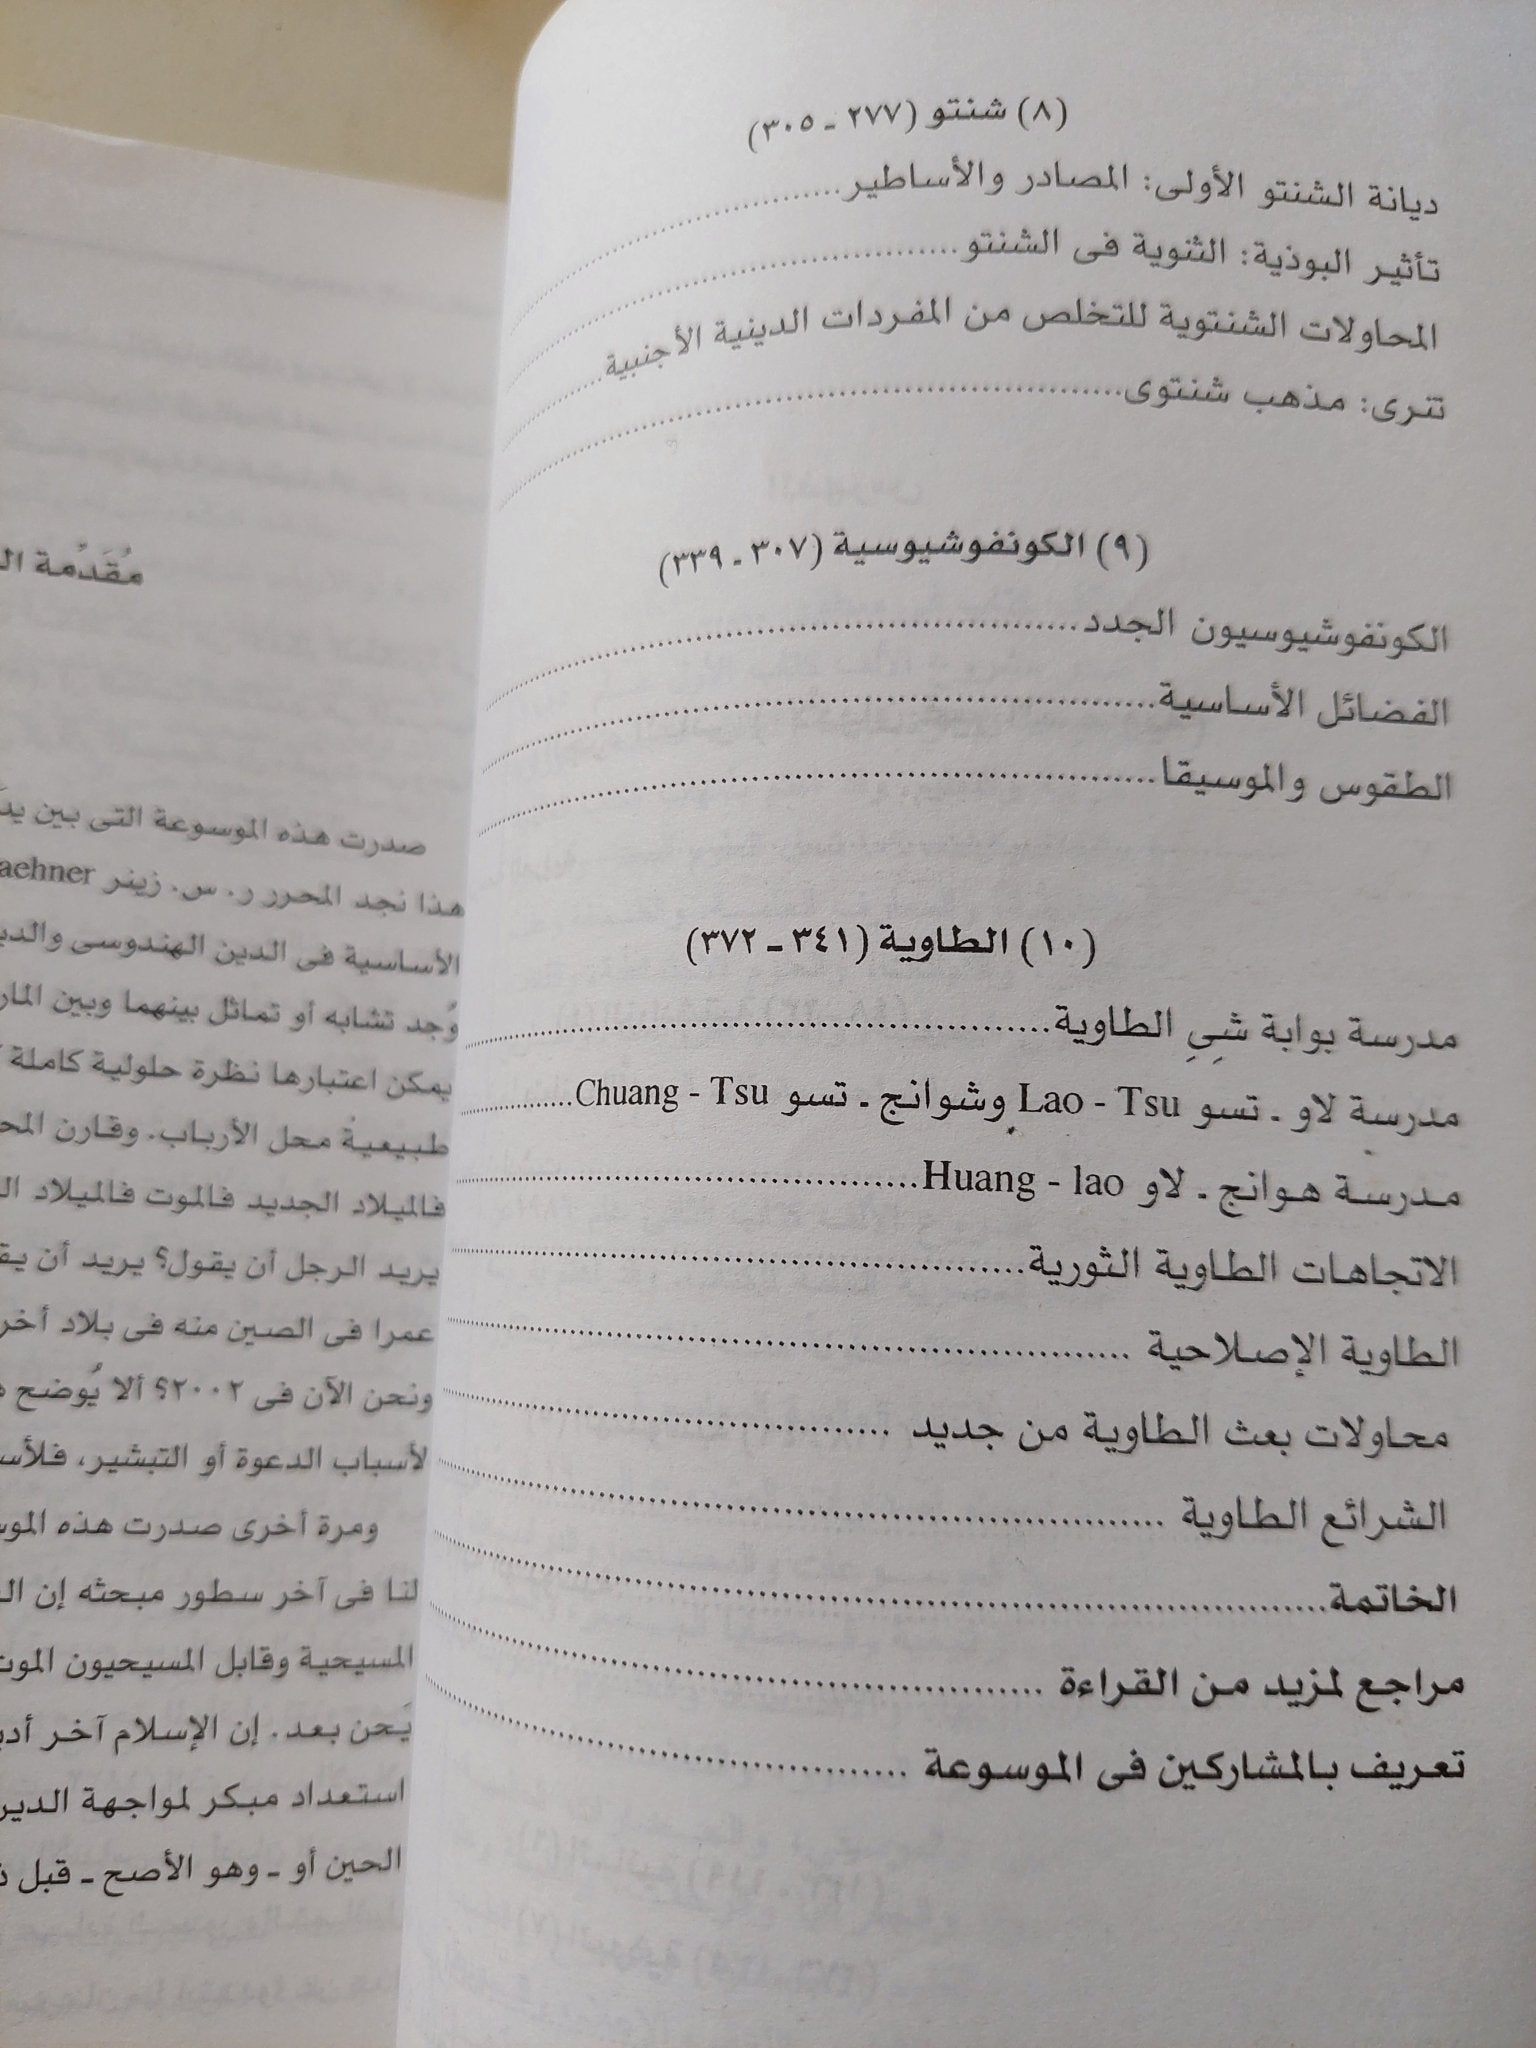 (٨) شنتو (٢٧٧ ـ ٣٠٥)
ديانة الشنتو الأولى: المصادر والأساطير
تأثير البوذية: الثنوية فى الشنتو
المحاولات الشنتوية للتخلص من المفردات الدينية الأجنبية
تنرى: مذهب شنتوى
(٩) الكونفوشيوسية (٣٠٧ ـ ٣٣٩)
الكونفوشيوسيون الجدد
الفضائل الأساسية
الطقوس والموسيقا
(١٠) الطاوية (٣٤١ ـ ٣٧٢)
مدرسة بوابة شِىِ الطاوية
مدرسة لاو ـ تسو Lao - Tsu وشوانج ـ تسو Chuang - Tsu
مدرسة هوانج ـ لاو Huang - lao
الاتجاهات الطاوية الثورية
الطاوية الإصلاحية
محاولات بعث الطاوية من جديد
الشرائع الطاوية
الخاتمة
مراجع لمزيد من القراءة
تعريف بالمشاركين فى الموسوعة
مُقَدِّمة
صدرت هذه الموسوعة التى بين
هذا نجد المحرر ر. س. زينر aehner
الأساسية فى الدين الهندوسى
وُجد تشابه أو تماثل بينهما وبين
يمكن اعتبارها نظرة حلولية كاملة
طبيعية محل الأرباب. وقارن
فالميلاد الجديد فالموت فالميلاد
يريد الرجل أن يقول؟ يريد أن
عمرا فى الصين منه فى بلاد
ونحن الآن فى ٢٠٠٢؟ ألا يُوضح
لأسباب الدعوة أو التبشير،
ومرة أخرى صدرت هذه
لنا فى آخر سطور مبحثه إن
المسيحية وقابل المسيحيون
يَحن بعد. إن الإسلام آخر
استعداد مبكر لمواجهة
الحين أو ـ وهو الأصح ـ قبل